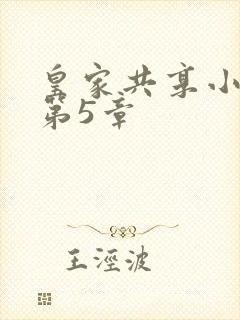 皇家共享小
第5章
王淫波